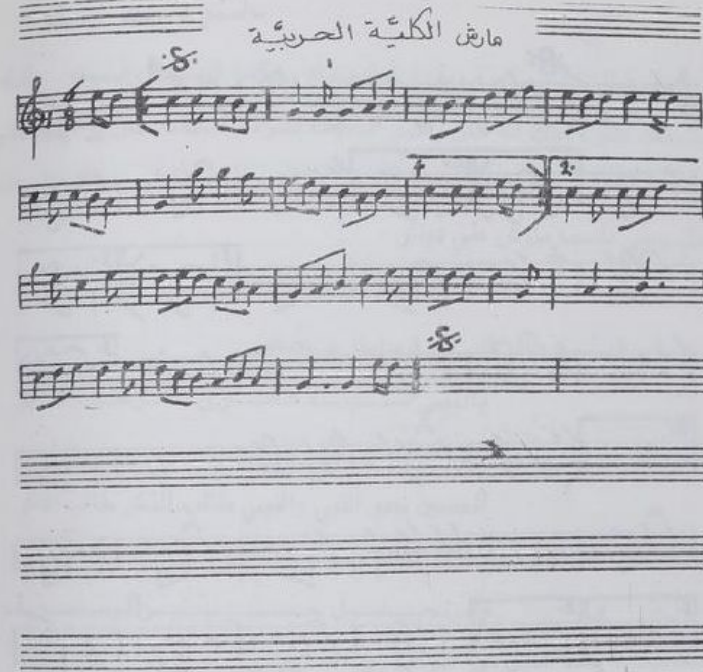 مارش الكليَّة الحربيَّة
6
8
1.
2.